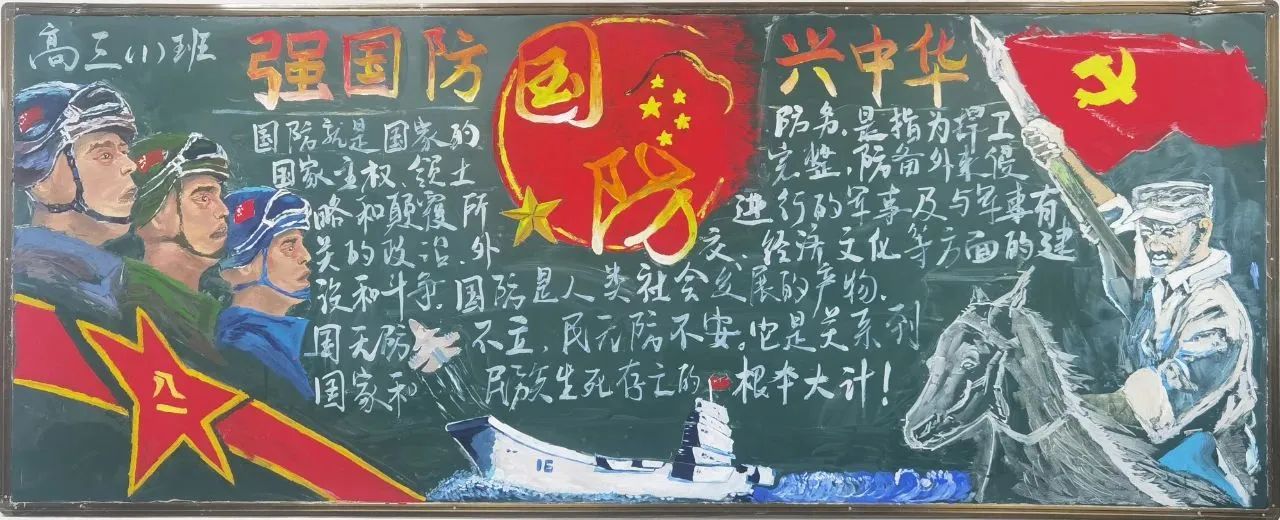 高三(1)班
强国防 兴中华
国防
国防就是国家的 防务,是指为捍卫
国家主权、领土 完整,防备外来侵
略和颠覆,所 进行的军事及与军事有
关的政治、外 交、经济、文化等方面的建
设和斗争。国防是人类社会发展的产物,
国无防 不立,民无防不安。它是关系到
国家和 民族生死存亡的 根本大计!
八一
16